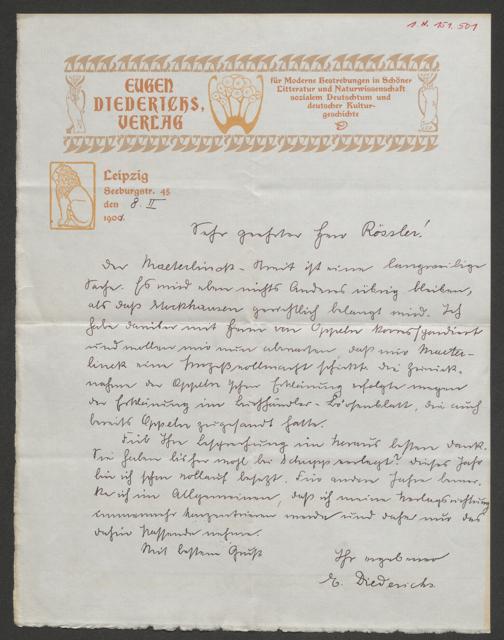 1 N. 151.501
EUGEN
DIEDERICHS,
VERLAG
für Moderne Bestrebungen in Schöner
Litteratur und Naturwissenschaft
sozialem Deutschtum und
deutscher Kultur-
geschichte
Leipzig
Seeburgstr. 45
den 8. II
190
Sehr geehrter Herr Rössler!
Der Maeterlinck-Streit ist eine langweilige
Sache. Es wird eben nichts Anderes übrig bleiben,
als daß Stockhausen gerichtlich belangt wird. Ich
habe darüber mit Herrn von Oppeln korrespondiert
und wollen wir nun abwarten, daß mir Maeter-
linck eine Prozeßvollmacht schickt. Die Zurück-
nahme der Oppeln'schen Erklärung erfolgte wegen
der Erklärung im Buchhändler-Börsenblatt, die auch
bereits Oppeln zugesandt hatte.
Für Ihre Besprechung im voraus besten Dank.
Sie haben bisher wohl bei Schupp verlegt? Dieses Jahr
bin ich schon vollauf besetzt. Für andere Jahre bemer-
ke ich im Allgemeinen, daß ich meine Verlagsrichtung
immermehr konzentrieren werde und daher nur das
dahin Passende nehme.
Mit bestem Gruß
Ihr ergebener
E. Diederichs